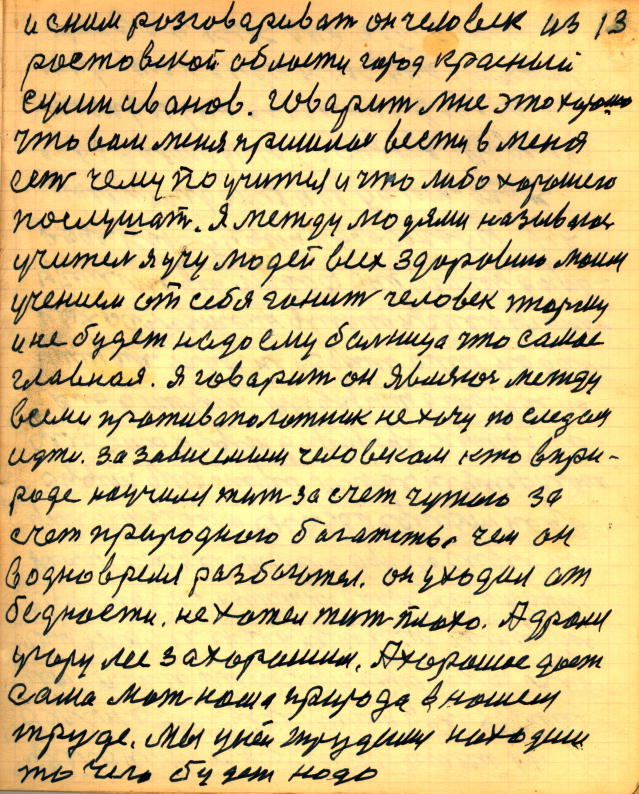 и сним розговариват он человек из 13
ростовской области город красный
сулин иванов. говарит мне это хорошо
что вам меня пришлос вести в меня
сет чему поучится и что либо хорошего
послушат. я между людями называюс
учител я учу людей всех здоровию моим
учением от себя гонит человек тюрму
и не будет надо ему болница что самое
главная. я говарит он являюс между
всеми противаположник не хочу по следам
идти. за зависемим человекам кто впри-
роде научился жит за счет чужого за
счет природного богатства чем он
водно время разбогател. он уходил от
бедности. не хотел жит плохо. А дрожи
умерли за хорошим. А хорошое дает
сама мат наша природа в нашем
труде. мы уней трудимся находим
то чего будет надо